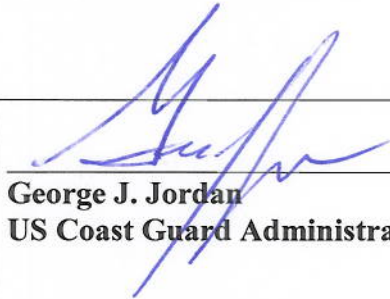 George J. Jordan
US Coast Guard Administra